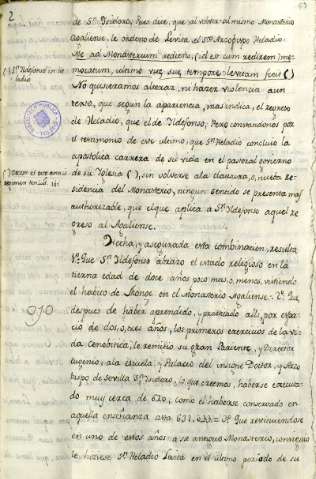 2
63
de Sn. Isidoro, sino que, que al volver al mismo Monasterio
Agaliense, le ordenó de Levita el Sto. Arzobispo Heladio.
Me ad Monasterium rediens, (id est cum redirem)
moratum, ultimo vitæ suæ tempore levitam fecit ( )
( ) S. Ildefonso in Heladio
No quisieramos alterar, ni hacer violencia a un
texto, que segun la apariencia, mas indica, el regreso
de Heladio, que el de Ildefonso; Pero constandonos por
el testimonio de este ultimo, que Sn. Heladio concluio la
apostolica carrera de su vida en el pastoral govierno
de su Iglesia ( ), sin volverse ala clausura, o nueva re-
sidencia del Monasterio, ningun sentido se presenta mas
authorizable, que el que aplica a Sn. Ildefonso aquel re-
greso al Agaliense.
Hecha, y asegurada esta combinacion, resulta
1º. Que Sn. Ildefonso abrazo el estado religioso en la
tierna edad de doce años poco mas, o menos, vistiendo
el habito de Monge en el Monasterio Agaliense. 2º. Que
despues de haber aprendido, y practicado alli, por espa-
cio de dos, o tres años, los primeros exercicios de la vi-
da Cenobitica, le remitio su gran Pariente, y Director
Eugenio, ala escuela, y Palacio del insigne Doctor, y Arzo-
bispo de Sevilla Sn. Isidoro, lo que creemos, haberse executa-
do muy cerca de 620, como el haberse conservado en
aquella enseñanza asta 631, 632= 3º. Que restituiendose
en uno de estos años a su antiguo Monasterio,
le hiciese Sn. Heladio Levita en el ultimo periodo de su